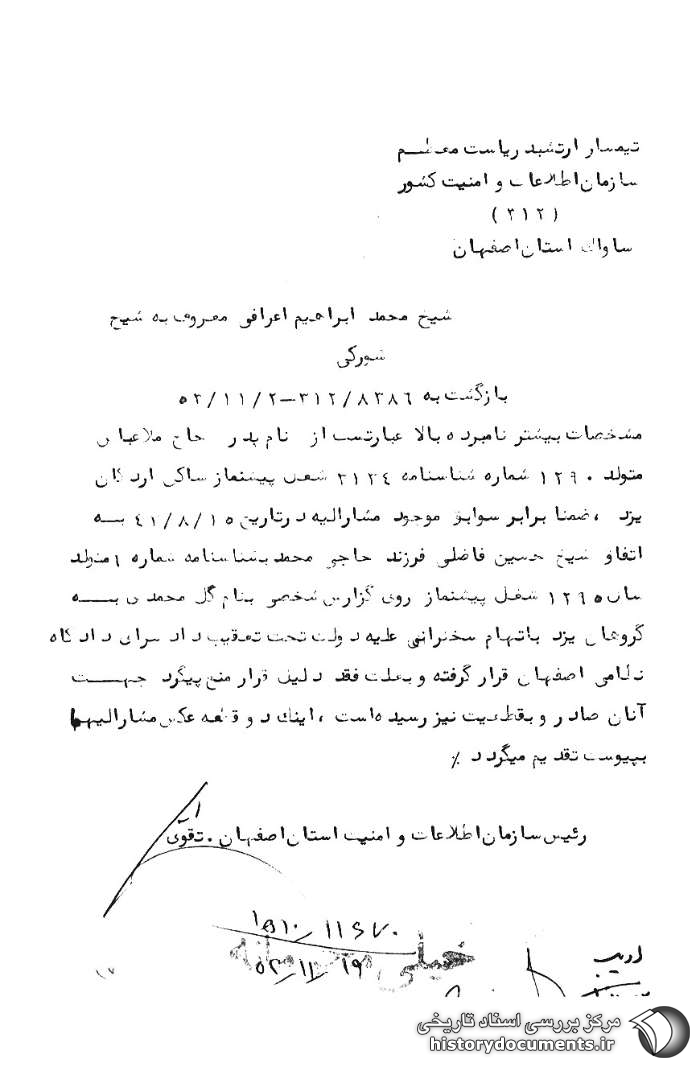 تیمسار ارتشبد ریاست معظم
سازمان اطلاعات و امنیت کشور
( ۳۱۲ )
ساواک استان اصفهان
شیخ محمد ابراهیم اعرافی معروف به شیخ
شورکی
بازگشت به ۳۱۲/۸۳۸۶-۵۲/۱۱/۲
مشخصات بیشتر نامبرده بالا عبارتست از نام پدر حاج ملاعباس
متولد ۱۲۹۰ شماره شناسنامه ۳۱۳۴ شغل پیشنماز ساکن اردکان
یزد ، ضمنا برابر سوابق موجود مشارالیه در تاریخ ۴۱/۸/۱۵ به
اتفاق شیخ حسین فاضلی فرزند حاجی محمد بشناسنامه شماره ۱ متولد
سال ۱۲۹۵ شغل پیشنماز روی گزارش شخصی بنام گل محمدی به
گروهان یزد باتهام سخنرانی علیه دولت تحت تعقیب دادسرای دادگاه
نظامی اصفهان قرار گرفته و بعلت فقد دلیل قرار منع پیگرد جهت
آنان صادر و بقطعیت نیز رسیده است ، اینک دو قطعه عکس مشارالیهما
بپیوست تقدیم میگردد ٪
رئیس سازمان اطلاعات و امنیت استان اصفهان . تقوی
خیلی محرمانه
۵۲/۱۱/۱۹
مرکز بررسی اسناد تاریخی
historydocuments.ir